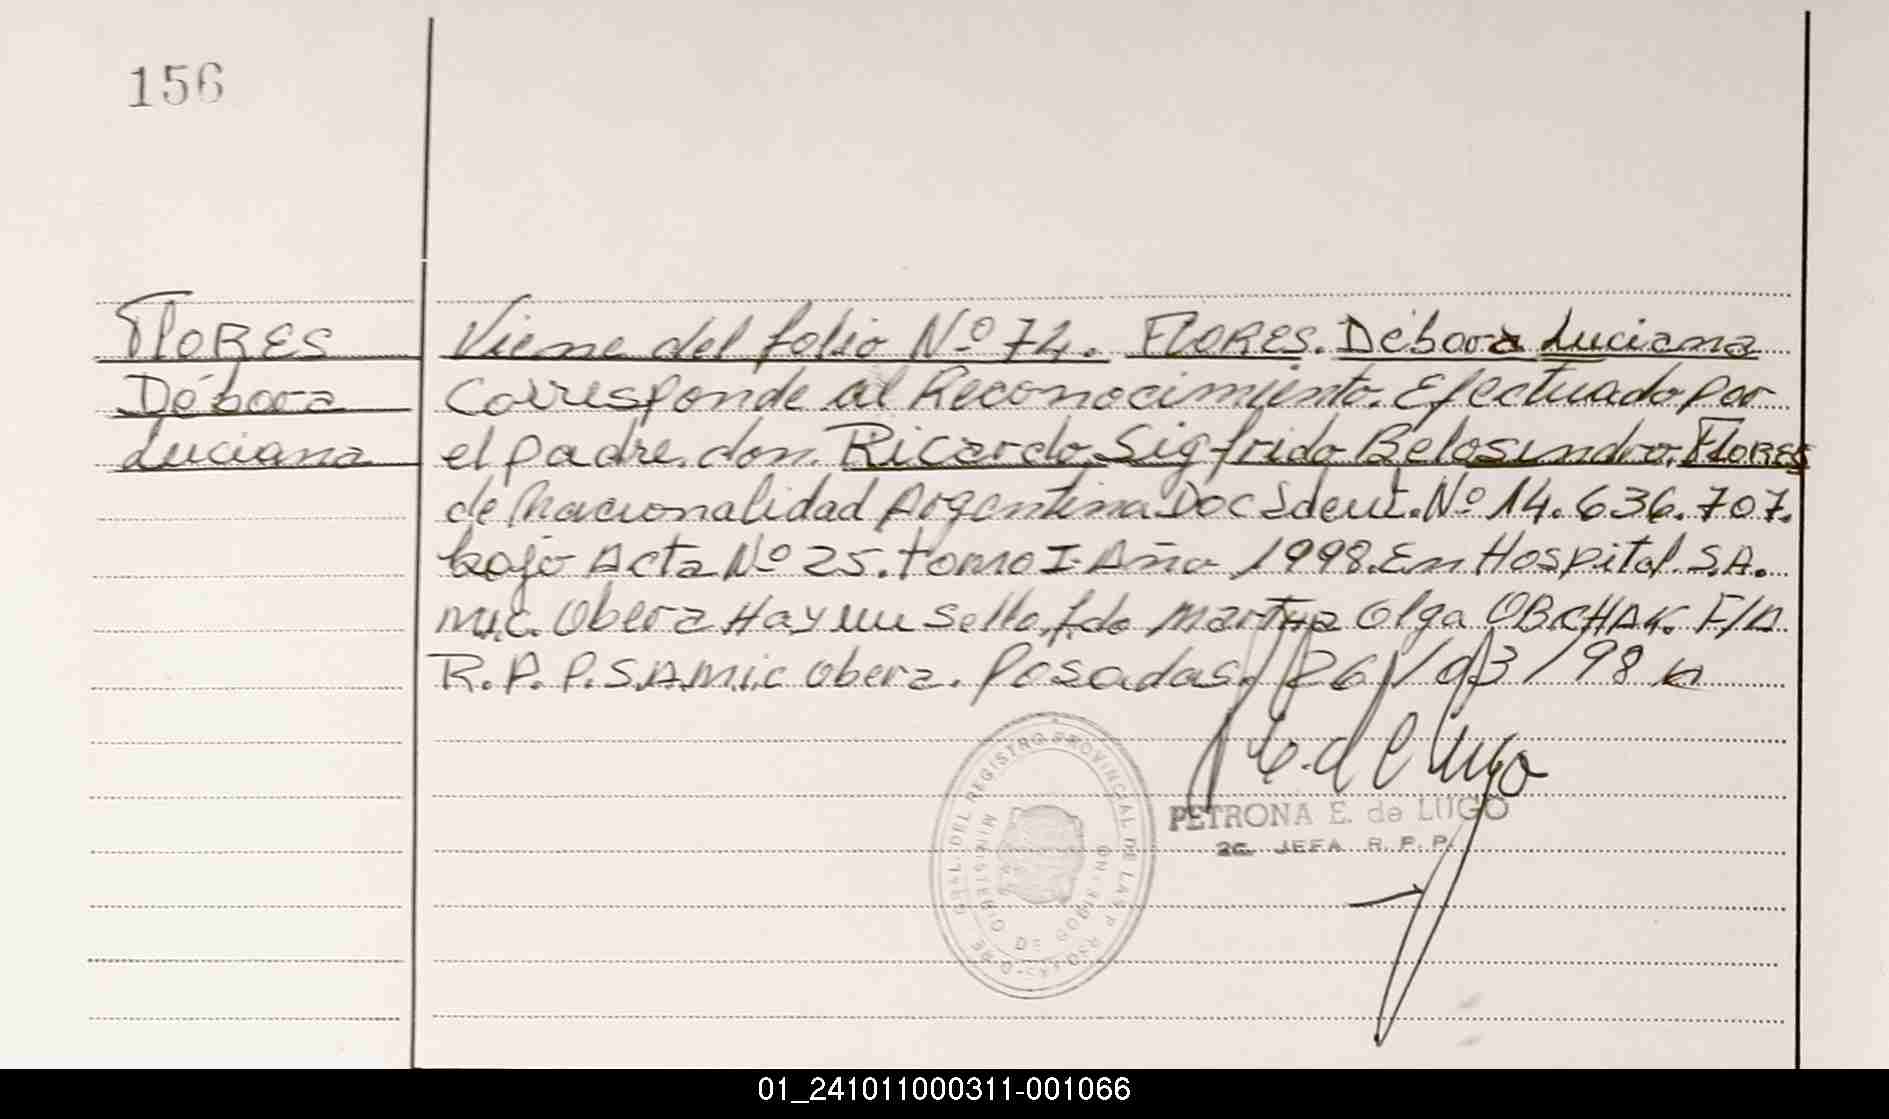 156
FLORES
Débora
Luciana
Viene del folio Nº 74. FLORES. Débora Luciana
Corresponde al Reconocimiento. Efectuado por
el padre. don. Ricardo Sigfrido Belosindro. FLORES
de Nacionalidad Argentina Doc Ident. Nº 14.636.707.
bajo Acta Nº 25. tomo I. Año 1998. En Hospital. S.A.
M.i.c. Obera Hay un Sello. fdo Martha Olga OBCHAK. F/A
R.P.P. S.A.M.i.c Obera. Posadas. 26/03/98
P.E. de Lugo
PETRONA E. de LUGO
2a. JEFA R.P.P.
GRAL. DEL REGISTRO PROVINCIAL DE LAS
MINISTERIO DE
01_241011000311-001066